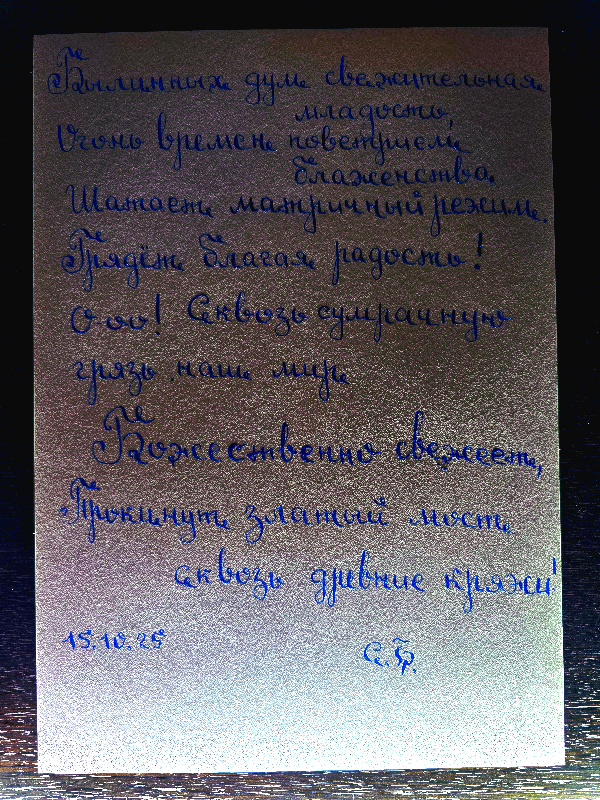 Былинных дум свежительная
младость,
Огонь времен поветрием
блаженства
Шатает матричный режим.
Грядёт благая радость!
О-оо! Сквозь сумрачную
грязь наш мир
Божественно свежеет,
Прокинут златый мост
сквозь древние кряжи!
15.10.25
С.Б.